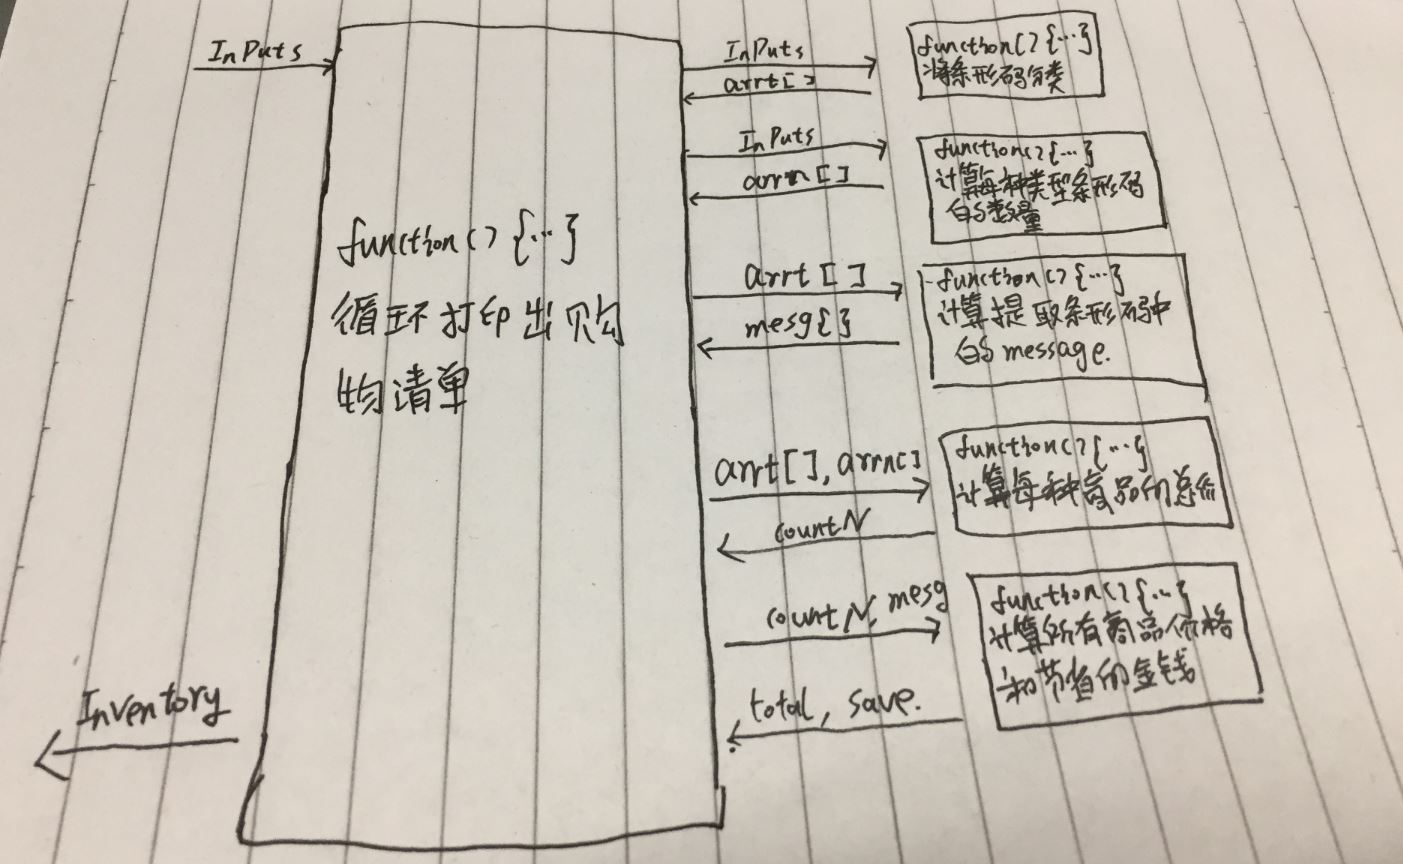 InPuts
function() {...}
循环打印出购
物清单
Inventory
InPuts
arrt[]
function() {...}
将条形码分类
InPuts
arrn[]
function() {...}
计算每种类型条形码
的数量
arrt[]
mesg{}
function() {...}
计算提取条形码中
的message.
arrt[], arrn[]
countN
function() {...}
计算每种商品的总价
countN, mesg
total, save.
function() {...}
计算所有商品价格
和节省的金钱